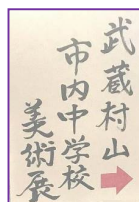 武蔵村山
市内中学校
美術展